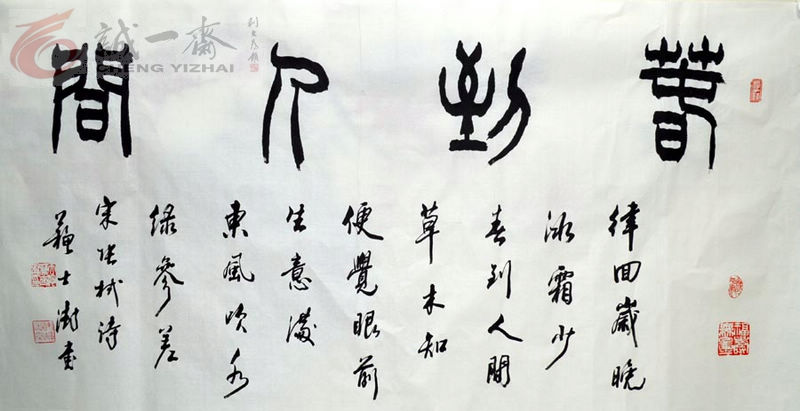 春到人間
律回歲晚
冰霜少
春到人間
草木知
便覺眼前
生意滿
東風吹水
綠參差
宋張栻詩
蘇士澍書
誠一齋
CHENG YIZHAI